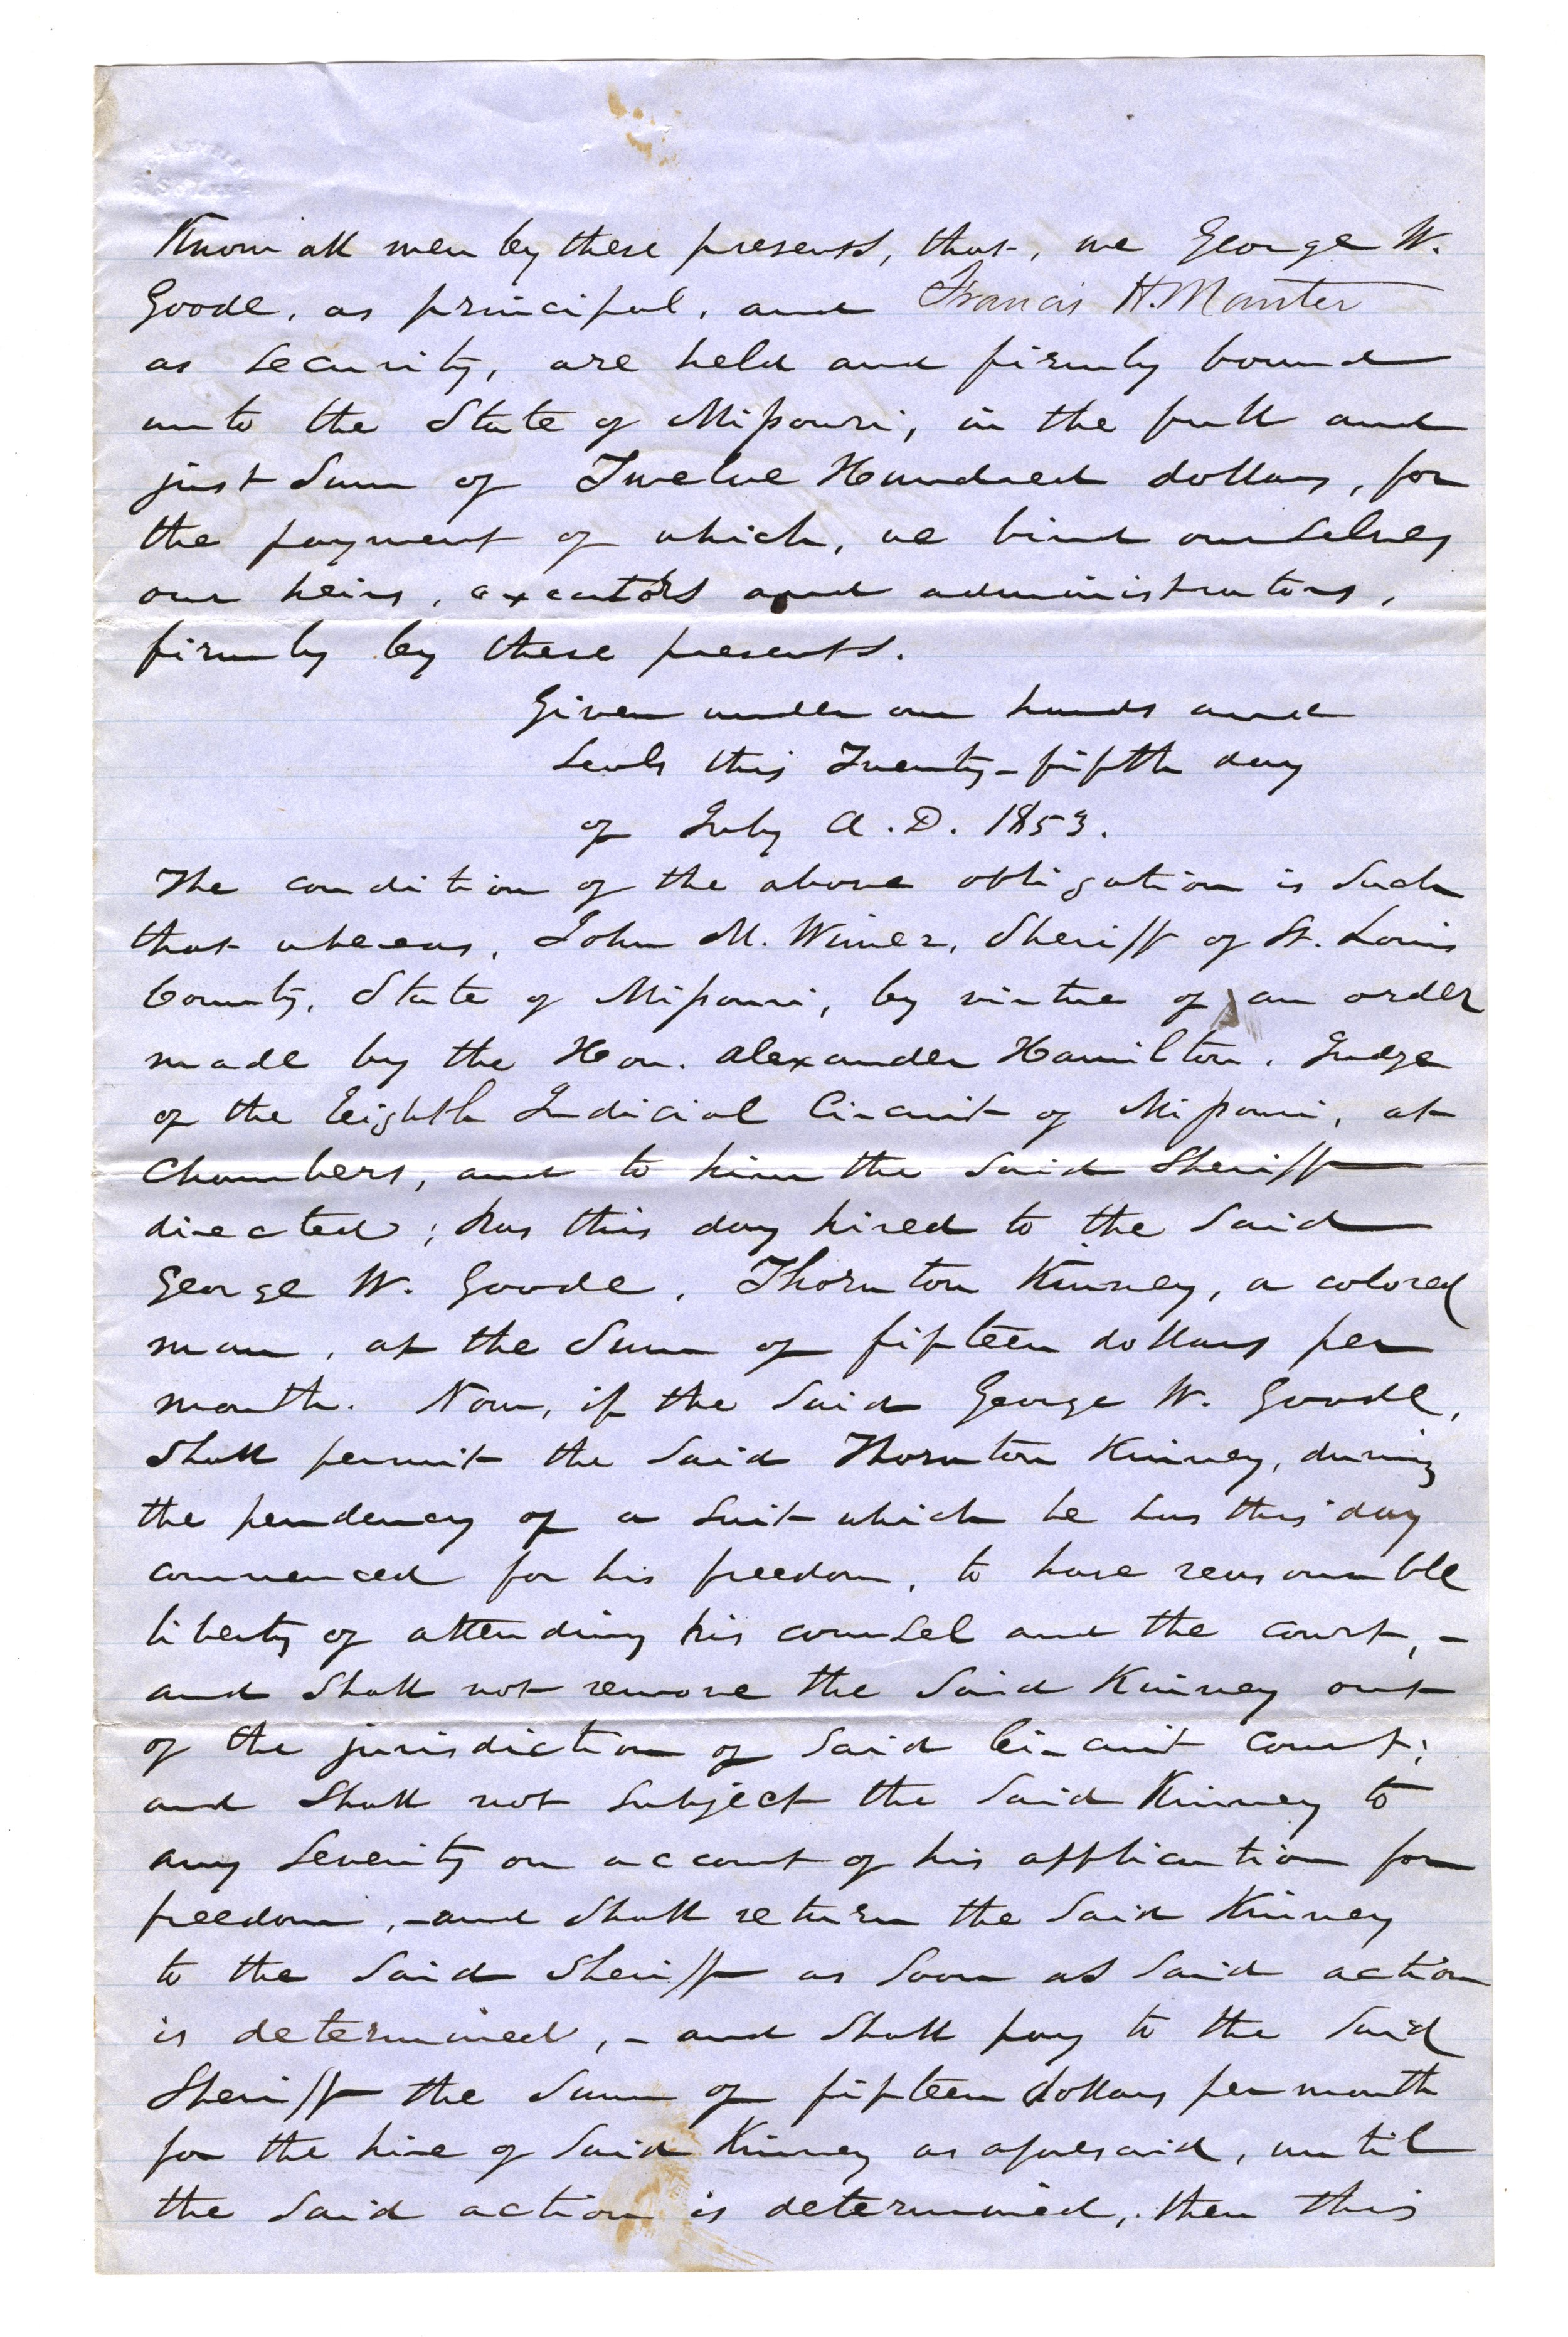 Know all men by these presents, that, we George W.
Goode, as principal, and Francis H. Manter
as security, are held and firmly bound
unto the State of Missouri, in the full and
just Sum of Twelve Hundred dollars, for
the payment of which, we bind ourselves
our heirs, executors and administrators,
firmly by these presents.
Given under our hands and
Seals this Twenty-fifth day
of July A.D. 1853.
The condition of the above obligation is Such
that whereas, John M. Wimer, Sheriff of St. Louis
County, State of Missouri, by virtue of an order
made by the Hon. Alexander Hamilton, Judge
of the Eighth Judicial Circuit of Missouri, at
Chambers, and to him the Said Sheriff
directed; has this day hired to the Said
George W. Goode, Thornton Kinney, a colored
man, at the Sum of fifteen dollars per
month. Now, if the Said George W. Goode,
Shall permit the Said Thornton Kinney, during
the pendency of a Suit which he has this day
commenced for his freedom, to have reasonable
liberty of attending his counsel and the court, -
and Shall not remove the Said Kinney out
of the jurisdiction of Said Circuit Court;
and Shall not Subject the Said Kinney to
any Severity on account of his application for
freedom, - and Shall return the Said Kinney
to the Said Sheriff as Soon as Said action
is determined, - and Shall pay to the Said
Sheriff the Sum of fifteen dollars per month
for the hire of Said Kinney as aforesaid, until
the Said action is determined, then this